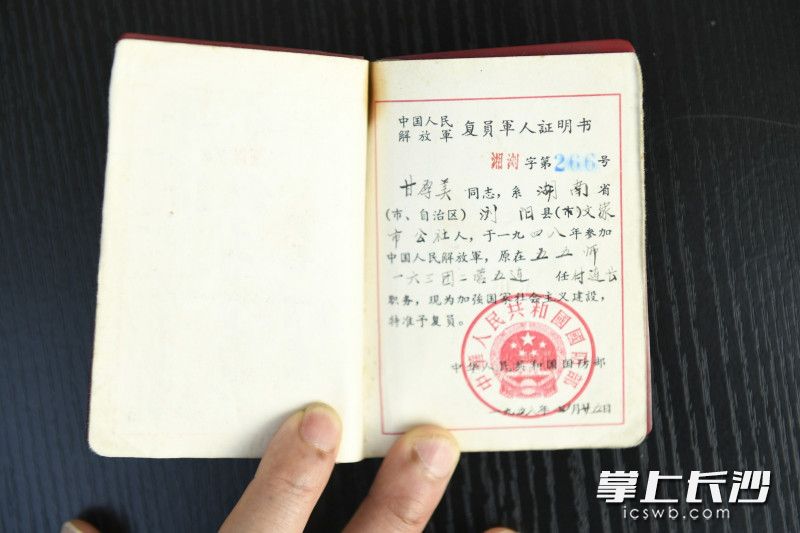 中国人民
解放軍
复員軍人証明书
湘浏字第266号
甘厚美同志，系湖南省
(市、自治区)浏阳县(市)文家
市公社人，于一九四八年参加
中国人民解放軍，原在五五师
一六三团二营五连 任付连长
职务，现为加強国家社会主义建設，
特准予复員。
中华人民共和国国防部
中華人民共和國國防部
一九五八年 月 日
掌上长沙
icswb.com